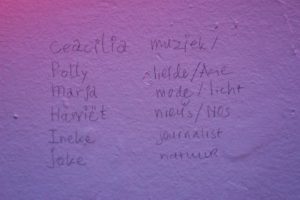 Ceacilia muziek/
Polly liefde/Arie
Marja mode/licht
Harriët nieuws/NOS
Ineke journalist
Joke natuur